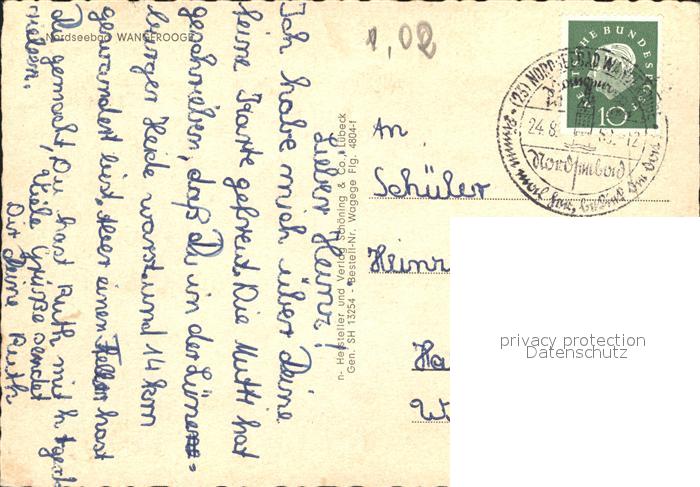 Nordseebad WANGEROOGE
1,02
Lieber Heinz!
Ich habe mich über Deine
feine Karte gefreut. Die Mutti hat
geschrieben, daß Du in der Lüne=
burger Heide warst und 14 km
gewandert bist. Aber einen hast
Du gemacht, Du hast Ruth mit h
Viele Grüße sendet
Dir Deine Ruth
n- Hersteller und Verlag Schöning & Co., Lübeck
Gen. SH 13254 - Bestell-Nr. Wagege Flg. 4804-f
DEUTSCHE BUNDESPOST
10
(23) NORDSEEBAD
24.8.
Nordseebad
An
Schüler
Heinz
privacy protection
Datenschutz